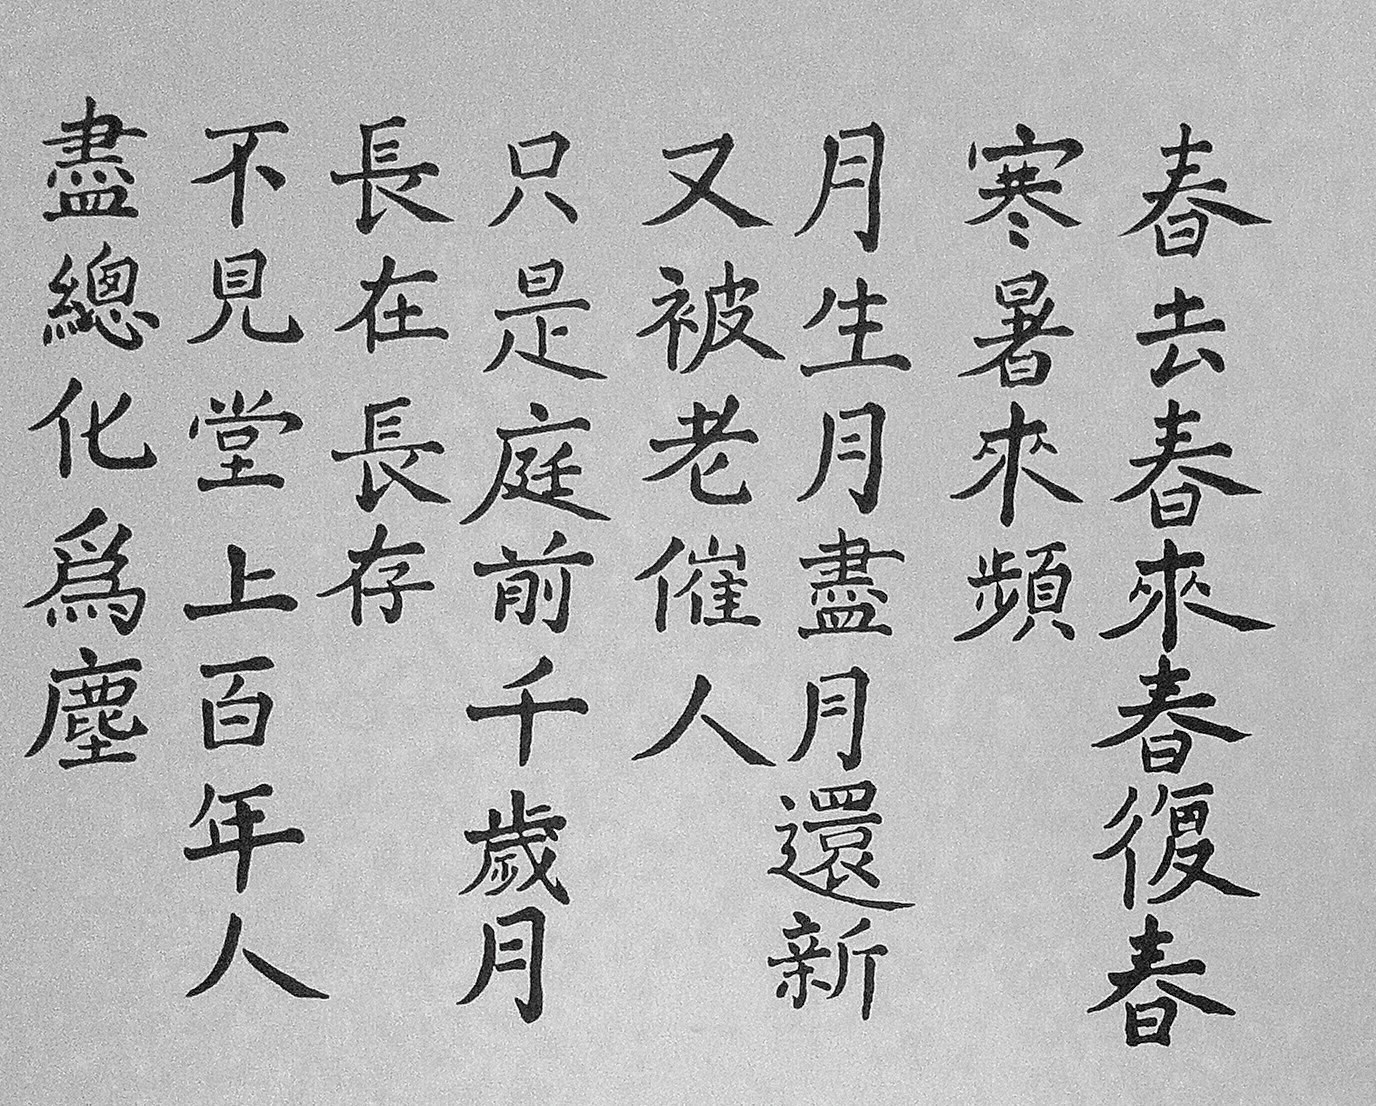 春去春來春復春
寒暑來頻
月生月盡月還新
又被老催人
只是庭前千歲月
長在長存
不見堂上百年人
盡總化爲塵